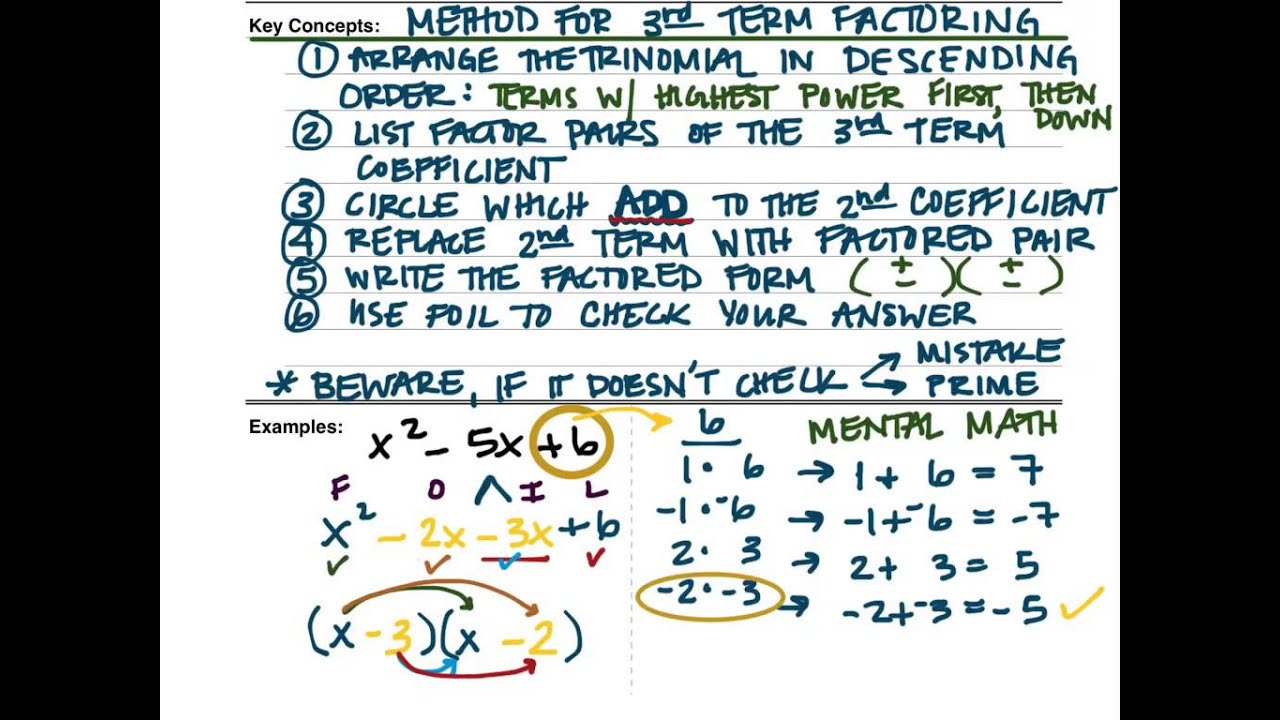 Key Concepts: METHOD FOR 3rd TERM FACTORING
① ARRANGE THE TRINOMIAL IN DESCENDING
ORDER: TERMS W/ HIGHEST POWER FIRST, THEN DOWN
② LIST FACTOR PAIRS OF THE 3rd TERM
COEFFICIENT
③ CIRCLE WHICH ADD TO THE 2nd COEFFICIENT
④ REPLACE 2nd TERM WITH FACTORED PAIR
⑤ WRITE THE FACTORED FORM ( ± )( ± )
⑥ USE FOIL TO CHECK YOUR ANSWER
* BEWARE, IF IT DOESN'T CHECK → MISTAKE
→ PRIME
Examples:
x² - 5x + 6
F O I L
x² - 2x - 3x + 6
✓ ✓ ✓ ✓
(x - 3)(x - 2)
6
1 · 6
-1 · -6
2 · 3
-2 · -3
MENTAL MATH
→ 1 + 6 = 7
→ -1 + -6 = -7
→ 2 + 3 = 5
→ -2 + -3 = -5 ✓